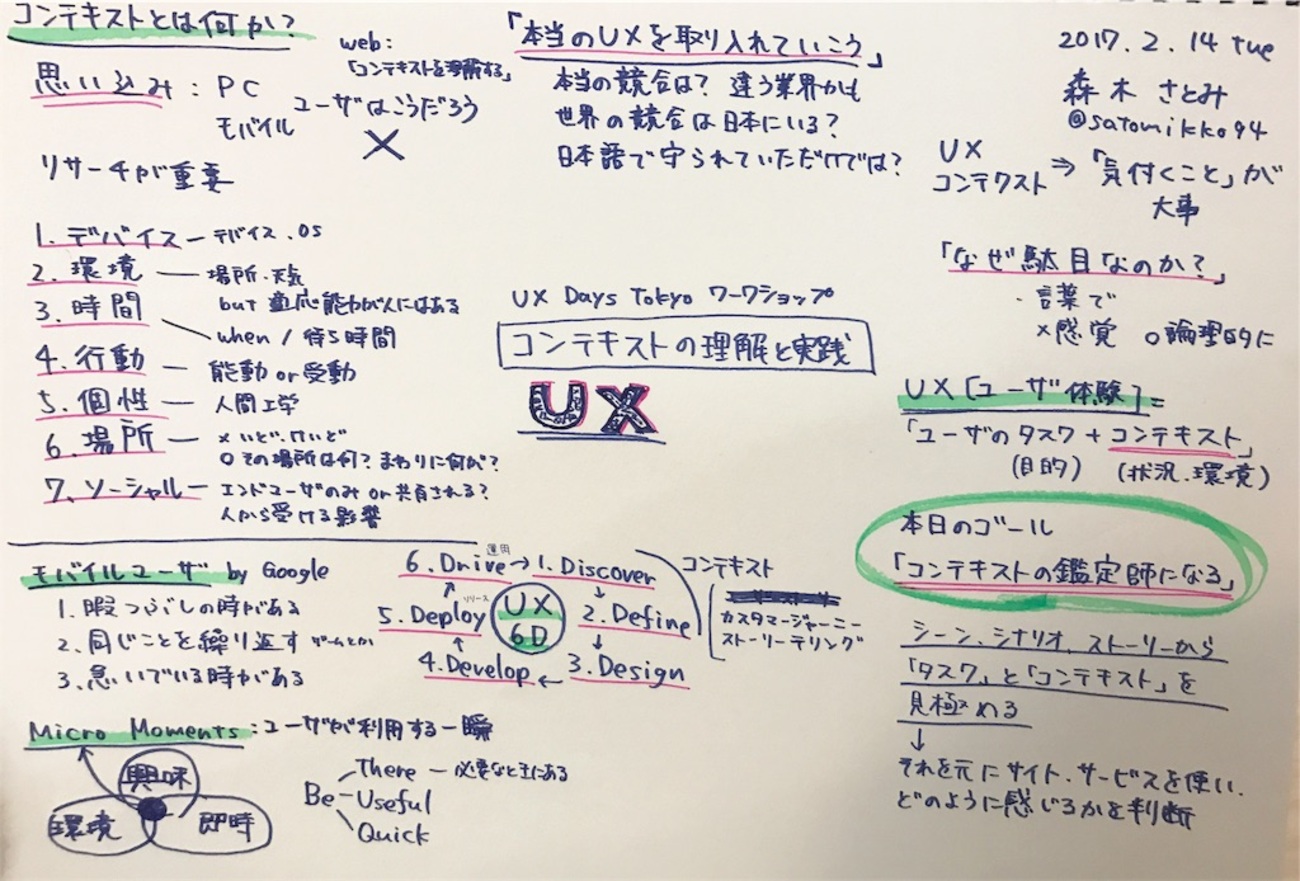 コンテキストとは何か?
web:
「コンテキストを理解する」
思い込み : PC
モバイル
ユーザはこうだろう
×
リサーチが重要
1. デバイス − デバイス.OS
2. 環境 − 場所.天気
but 適応能力が人にはある
3. 時間
when / 待ち時間
4. 行動 − 能動 or 受動
5. 個性 − 人間工学
6. 場所 − × いど.けいど
○ その場所は何? まわりに何が?
7. ソーシャル − エンドユーザのみ or 共有される?
人から受ける影響
「本当のUXを取り入れていこう」
本当の競合は? 違う業界かも
世界の競合は日本にいる?
日本語で守られていただけでは?
UX Days Tokyo ワークショップ
コンテキストの理解と実践
UX
2017.2.14 tue
森木 さとみ
@satomikko94
UX
コンテクスト ⇒ 「気付くこと」が
大事
「なぜ駄目なのか?」
・言葉で
×感覚 ○論理的に
UX [ユーザ体験] =
「ユーザのタスク + コンテキスト」
(目的) (状況.環境)
本日のゴール
「コンテキストの鑑定師になる」
シーン、シナリオ、ストーリーから
「タスク」と「コンテキスト」を
見極める
↓
それを元にサイト、サービスを使い、
どのように感じるかを判断
モバイルユーザ by Google
1. 暇つぶしの時がある
2. 同じことを繰り返す ゲームとか
3. 急いでいる時がある
UX
6D
1. Discover
2. Define
3. Design
4. Develop
5. Deploy リリース
6. Drive 運用
コンテキスト
カスタマージャーニー
ストーリーテリング
Micro Moments : ユーザが利用する一瞬
興味
環境
即時
Be
There − 必要なときにある
Useful
Quick